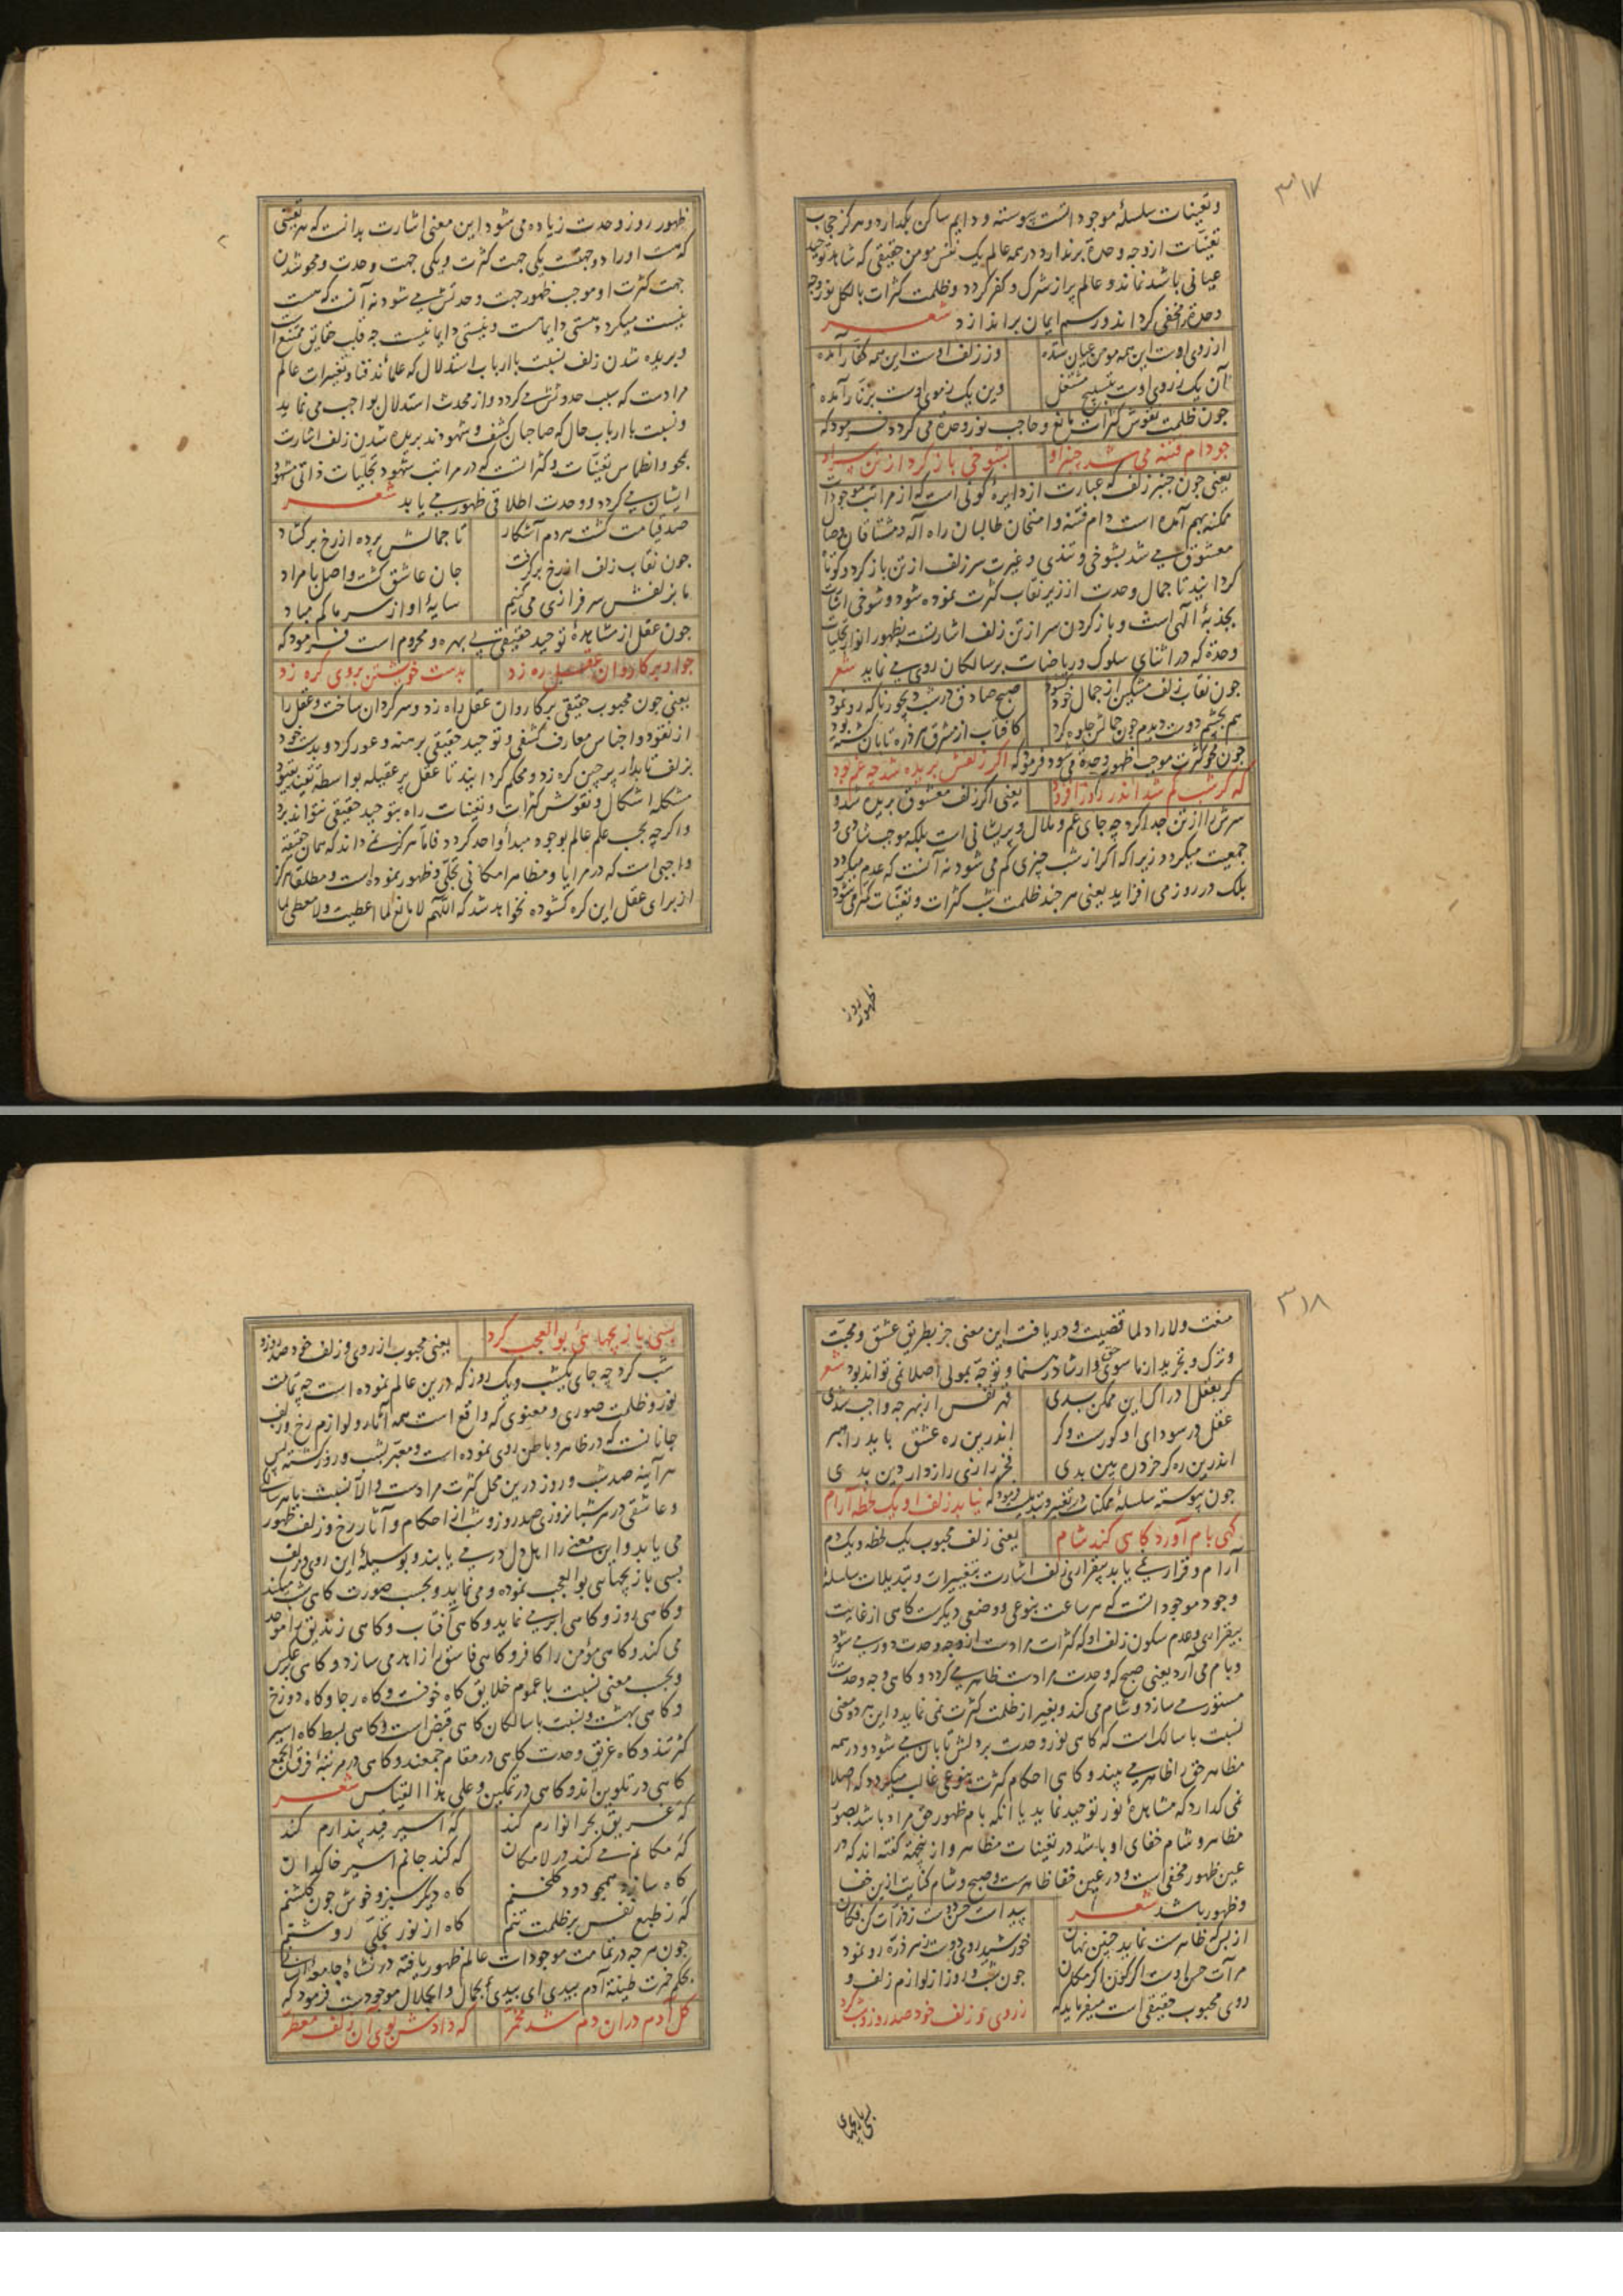 ۳۱۷
و تعینات سلسلهٔ موجود است پیوسته و دایم ساکن بگذارد و هرگز حجاب
تعینات از وجه وحدة برندارد در همه عالم یک نفس مومن حقیقی که شاهد توحید
عیانی باشد نماند و عالم پر از شرک و کفر گردد و ظلمت کثرات بالکل نور وجه
وحدة را مخفی گرداند و رسم ایمان براندازد شعر
از روی اوست این همه مومن عیان شده وز زلف اوست این همه کفار آمده
آن یک ز روی اوست بتسبیح مشتغل وین یک ز موی اوست بزنار آمده
چون ظلمت نقوش کثرات مانع و حاجب نور وحدة می گردد فرمود که
چو دام فتنه می شد چنبر او بشوخی باز کرد از تن سر او
یعنی چون چنبر زلف که عبارت از دایرهٔ کونی است که از مراتب موجودات
ممکنه بهم آمده است دام فتنه و امتحان طالبان راه اله و مشتاقان وصال
معشوق می شد بشوخی و تندی و غیرت سر زلف از تن باز کرد و کوتاه
گردانید تا جمال وحدت از زیر نقاب کثرت نموده شود و شوخی اشارت
بجذبهٔ الهی است و باز کردن سر از تن زلف اشارتست بظهور انوار تجلیات
وحدة که در اثنای سلوک و ریاضات بر سالکان روی می نماید شعر
چون نقاب زلف مشکین از جمال خود گشود صبح صادق در شب دیجور ناگه رو نمود
هم بچشم دوست دیدم چون جمالش جلوه کرد کافتاب از مشرق هر ذره تابان گشته بود
چون محو کثرت موجب ظهور وحدة می شود فرمود که اگر زلفش بریده شد چه غم بود
که گر شب کم شد اندر روز افزود یعنی اگر زلف معشوق بریده شد و
سرش را از تن جدا کرد چه جای غم و ملال و پریشانی است بلکه موجب شادی و
جمعیت میگردد زیرا که اگر از شب چیزی کم می شود نه آنست که عدم میگردد
بلک در روز می افزاید یعنی هر چند ظلمت شب کثرات و تعینات کمتر می شود
ظهور روز
ظهور روز وحدت زیاده می شود این معنی اشارت بدانست که هر تعینی
که هست او را دو جهتست یکی جهت کثرت و یکی جهت وحدت و محو شدن
جهت کثرت او موجب ظهور جهت وحدتش می شود نه آنست که هست
نیست میگردد هستی دایما هست و نیستی دایما نیست چه قلب حقایق ممتنع است
و بریده شدن زلف نسبت با ارباب استدلال که علمااند فنا و تغیرات عالم
مرادست که سبب حدوثش می گردد و از محدث استدلال بواجب می نماید
و نسبت با ارباب حال که صاحبان کشف و شهودند بریده شدن زلف اشارت
بمحو و انطماس تعینات و کثراتست که در مراتب شهود تجلیات ذاتی مشهود
ایشان می گردد و وحدت اطلاقی ظهور می یابد شعر
صد قیامت گشت هر دم آشکار تا جمالش پرده از رخ برگشاد
چون نقاب زلف از رخ برگرفت جان عاشق گشت واصل با مراد
ما بزلفش سرفرازی می کنیم سایهٔ او از سر ما کم مباد
چون عقل از مشاهدهٔ توحید حقیقی بی بهره و محروم است فرمود که
چو او بر کاروان عقل ره زد بدست خویشتن بر وی گره زد
یعنی چون محبوب حقیقی بر کاروان عقل راه زد و سرگردان ساخت و عقل را
از نقود و اجناس معارف کشفی و توحید حقیقی برهنه و عور کرد و بدست خود
بزلف تابدار پرچین گره زد و محکم گردانید تا عقل پر عقیله بواسطهٔ تقید بقیود
مشکلهٔ اشکال و نقوش کثرات و تعینات راه بتوحید حقیقی نتواند برد
و اگرچه بحسب علم عالم بوجود مبداء واحد گردد فاما هرگز نمی داند که همان حقیقة
واجبی است که در مرایا و مظاهر امکانی تجلی و ظهور نموده است و مطلقا هرگز
از برای عقل این گره گشوده نخواهد شد که اللهم لا مانع لما اعطیت ولا معطی لما
۳۱۸
منعت ولا راد لما قضیت و دریافت این معنی جز بطریق عشق و محبت
و ترک و تجرید از ما سوی حق و ارشاد رهنما و توجه بمولی اصلا نمی تواند بود شعر
گر بعقل ادراک این ممکن بدی قهر نفس از بهر چه واجب شدی
عقل در سودای او کورست و کر اندرین ره عشق باید راهبر
اندرین ره گر خرد ره بین بدی فخر رازی رازدار دین بدی
چون پیوسته سلسلهٔ ممکنات در تغیر و تبدیلست فرمود که نیابد زلف او یک لحظه آرام
گهی بام آورد گاهی کند شام یعنی زلف محبوب یک لحظه و یک دم
آرام و قرار نمی یابد بیقراری زلف اشارت بتغییرات و تبدیلات سلسلهٔ
وجود موجوداتست که هر ساعت بنوعی و وضعی دیگرست گاهی از غایت
بیقراری و عدم سکون زلف او که کثرات مرادست از وجه وحدت دور می شود
و بام می آرد یعنی صبح که وحدت مرادست ظاهر می گردد و گاهی وجه وحدت را
مستور می سازد و شام می کند و بغیر از ظلمت کثرت نمی نماید و این هر دو معنی
نسبت با سالک است که گاهی نور وحدت بر دلش تابان می شود و در همه
مظاهر حق را ظاهر می بیند و گاهی احکام کثرت بنوعی غالب میگردد که اصلا
نمی گذارد که مشاهدهٔ نور توحید نماید یا آنکه بام ظهور حق مراد باشد بصور
مظاهر و شام خفای او باشد در تعینات مظاهر و از اینجهة گفته اند که در
عین ظهور مخفی است و در عین خفا ظاهرست و صبح و شام کنایت ازین خفا
و ظهور باشد شعر پیداست حسن دوست ز ذرات کن فکان
از بس که ظاهرست نماید چنین نهان خورشید روی دوست ز هر ذره رو نمود
مرآت حسن اوست اگر کون اگر مکان چون شب و روز از لوازم زلف و
روی محبوب حقیقی است میفرماید که ز روی و زلف خود صد روز و شب کرد
بسی بازیچهای
بسی بازیچهای بوالعجب کرد یعنی محبوب از روی و زلف خود صد روز و
شب کرد چه جای یکشب و یک روز که درین عالم نموده است چه تمامت
نور و ظلمت صوری و معنوی که واقع است همه آثار و لوازم رخ و زلف
جانانست که در ظاهر و باطن روی نموده است و معبر بشب و روز گشته پس
هر آینه صد شب و روز درین محل کثرت مرادست و الا نسبت با هر سالکی
و عاشقی در هر شبانروزی صد روز و شب از احکام و آثار رخ و زلف ظهور
می یابد و این معنی را اهل دل درمی یابند و بوسیلهٔ این روی و زلف
بسی بازیچهای بوالعجب نموده و می نماید و بحسب صورت گاهی شب میکند
و گاهی روز و گاهی ابر می نماید و گاهی آفتاب و گاهی زندیق را موحد
می کند و گاهی مؤمن را کافر و گاهی فاسق را زاهد می سازد و گاهی برعکس
و بحسب معنی نسبت با عموم خلایق گاه خوفست و گاه رجا و گاه دوزخ
و گاهی بهشت و نسبت با سالکان گاهی قبض است و گاهی بسط گاه اسیر
کثرتند و گاه غریق وحدت گاهی در مقام جمعند و گاهی در مرتبهٔ فرق الجمع
گاهی در تلوین اند و گاهی در تمکین و علی هذا القیاس شعر
گه غریق بحر انوارم کند گه اسیر قید پندارم کند
گه مکانم می کند در لامکان گه کند جانم اسیر خاکدان
گاه سازد همچو دود گلخنم گاه دیگر سبز و خوش چون گلشنم
گه ز طبع نفس بر ظلمت تنم گاه از نور تجلی روشنم
چون هر چه در تمامت موجودات عالم ظهور یافته در نشاهٔ جامعهٔ انسانی
بحکم خمرت طینة آدم بیدی ای بیدی الجمال و الجلال موجودست فرمود که
گل آدم در آن دم شد مخمر که دادش بوی آن زلف معطر